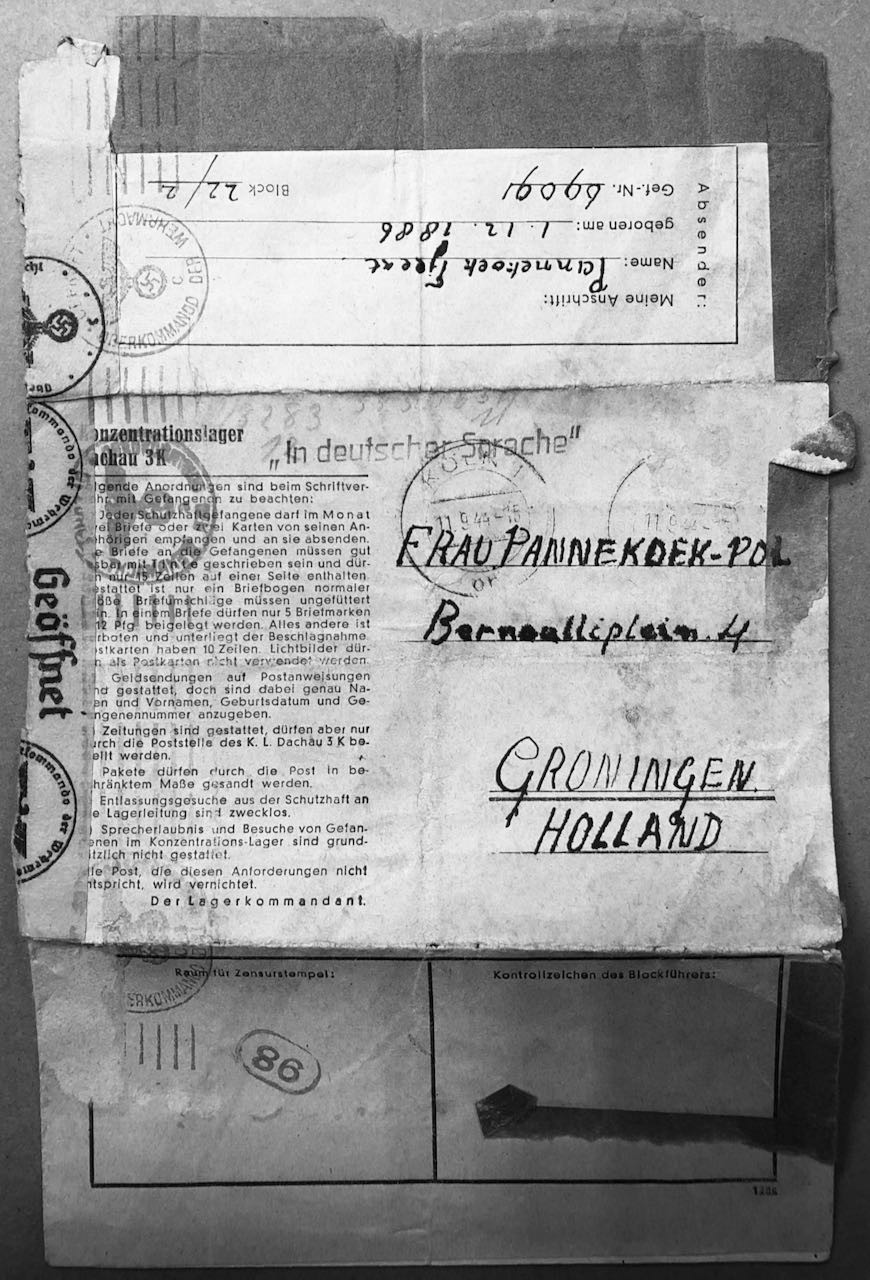 Absender:
Meine Anschrift:
Name: Pannekoek Geert
geboren am: 1. 12. 1886
Gef.-Nr. 69091 Block 22/2
OBERKOMMANDO DER WEHRMACHT
C
onzentrationslager
achau 3K
„In deutscher Sprache“
gende Anordnungen sind beim Schriftver-
hr mit Gefangenen zu beachten:
Jeder Schutzhaftgefangene darf im Monat
ei Briefe oder zwei Karten von seinen An-
hörigen empfangen und an sie absenden.
e Briefe an die Gefangenen müssen gut
sbar mit Tinte geschrieben sein und dür-
n nur 15 Zeilen auf einer Seite enthalten.
estattet ist nur ein Briefbogen normaler
öße. Briefumschläge müssen ungefüttert
in. In einem Briefe dürfen nur 5 Briefmarken
12 Pfg. beigelegt werden. Alles andere ist
rboten und unterliegt der Beschlagnahme.
stkarten haben 10 Zeilen. Lichtbilder dür-
n als Postkarten nicht verwendet werden.
Geldsendungen auf Postanweisungen
nd gestattet, doch sind dabei genau Na-
en und Vornamen, Geburtsdatum und Ge-
ngenennummer anzugeben.
Zeitungen sind gestattet, dürfen aber nur
rch die Poststelle des K. L. Dachau 3 K be-
ellt werden.
Pakete dürfen durch die Post in be-
hränktem Maße gesandt werden.
Entlassungsgesuche aus der Schutzhaft an
e Lagerleitung sind zwecklos.
Sprecherlaubnis und Besuche von Gefan-
enen im Konzentrations-Lager sind grund-
tzlich nicht gestattet.
lle Post, die diesen Anforderungen nicht
ntspricht, wird vernichtet.
Der Lagerkommandant.
KÖLN
11.9.44-15
FRAU PANNEKOEK-POL
4
GRONINGEN.
HOLLAND
Geöffnet
Raum für Zensurstempel:
Kontrollzeichen des Blockführers:
98